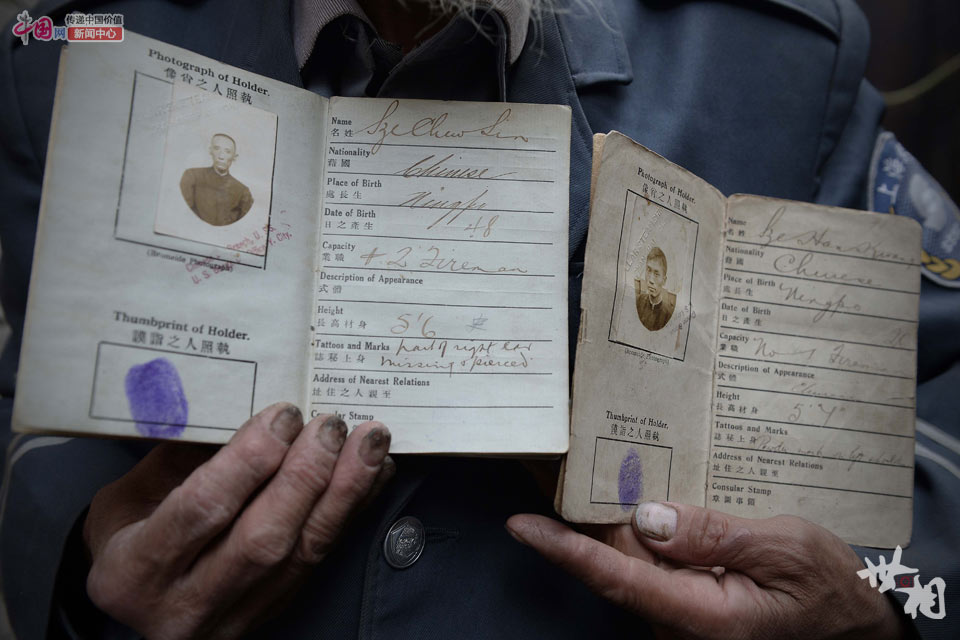 中国网
传递中国价值
新闻中心
Photograph of Holder.
像肖之人照執
(Bromide Photograph)
Thumbprint of Holder.
謨指之人照執
Name Sze Chew Sin
名姓
Nationality Chinese
籍國
Place of Birth Ningpo
處長生
Date of Birth 48
日之產生
Capacity # 2 Fireman
業職
Description of Appearance
式體
Height 5'6
長高材身
Tattoos and Marks part of right ear
誌秘上身 missing & pierced
Address of Nearest Relations
址住之人親至
Consular Stamp
Photograph of Holder.
像肖之人照執
(Bromide Photograph)
Thumbprint of Holder.
謨指之人照執
Name
名姓
Nationality Chinese
籍國
Place of Birth Ningpo
處長生
Date of Birth
日之產生
Capacity Fireman
業職
Description of Appearance
式體
Height 5'4"
長高材身
Tattoos and Marks
誌秘上身
Address of Nearest Relations
址住之人親至
Consular Stamp
章圖事領
上海
世相